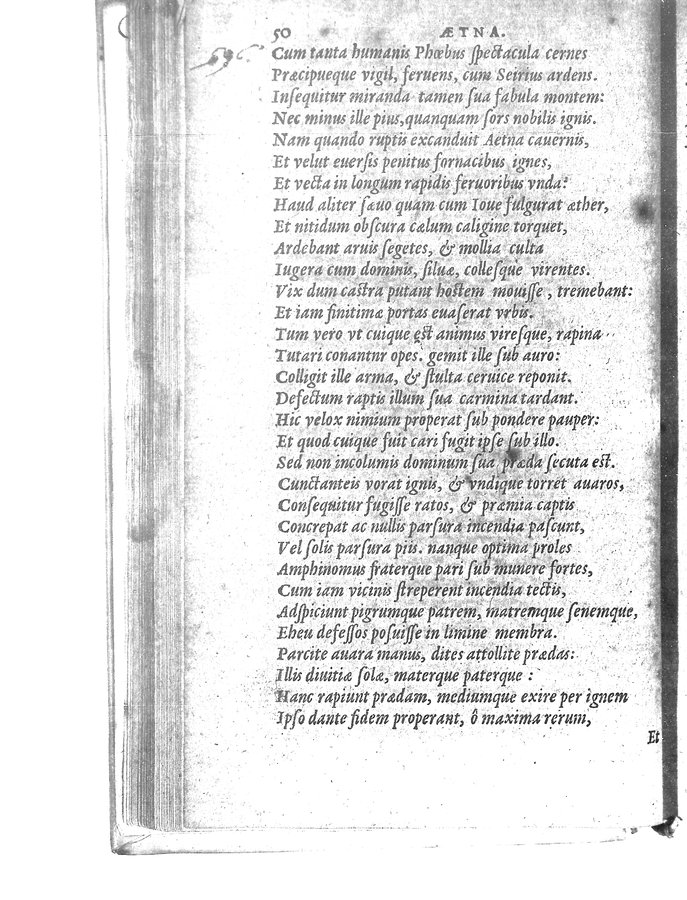 50 ÆTNA.
Cum tanta humanis Phœbus ſpectacula cernes
Præcipueque vigil, feruens, cum Seirius ardens.
Inſequitur miranda tamen ſua fabula montem:
Nec minus ille pius, quanquam ſors nobilis ignis.
Nam quando ruptis excanduit Aetna cauernis,
Et velut euerſis penitus fornacibus ignes,
Et vecta in longum rapidis feruoribus vnda:
Haud aliter ſæuo quam cum Ioue fulgurat æther,
Et nitidum obſcura cælum caligine torquet,
Ardebant aruis ſegetes, & mollia culta
Iugera cum dominis, ſiluæ, colleſque virentes.
Vix dum caſtra putant hoſtem mouiſſe, tremebant:
Et iam finitimæ portas euaſerat vrbis.
Tum vero vt cuique eſt animus vireſque, rapina
Tutari conantnr opes. gemit ille ſub auro:
Colligit ille arma, & ſtulta ceruice reponit.
Defectum raptis illum ſua carmina tardant.
Hic velox nimium properat ſub pondere pauper:
Et quod cuique fuit cari fugit ipſe ſub illo.
Sed non incolumis dominum ſua præda ſecuta eſt.
Cunctanteis vorat ignis, & vndique torret auaros,
Conſequitur fugiſſe ratos, & præmia captis
Concrepat ac nullis parſura incendia paſcunt,
Vel ſolis parſura piis. nanque optima proles
Amphinomus fraterque pari ſub munere fortes,
Cum iam vicinis ſtreperent incendia tectis,
Adſpiciunt pigrumque patrem, matremque ſenemque,
Eheu defeſſos poſuiſſe in limine membra.
Parcite auara manus, dites attollite prædas:
Illis diuitiæ ſolæ, materque paterque :
Hanc rapiunt prædam, mediumque exire per ignem
Ipſo dante fidem properant, ô maxima rerum,
Et